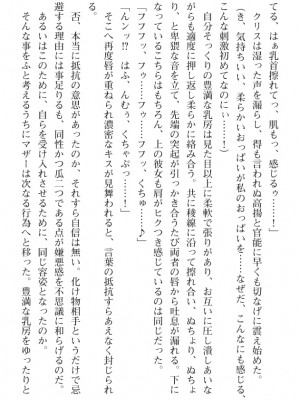 てる、はぁ乳首擦れてっ、肌もっ、感じるっ……!
クリスは湿った声を漏らし、得も言われぬ高揚と官能に早くも切なげに震え始めた。
き、気持ちいい、柔らかいおっぱいが私のおっぱいを……なぜだ、こんなにも感じる、
こんな刺激初めてなのにぃ……!
自分そっくりの豊満な乳房は見た目以上に柔軟で張りがあり、お互いに圧し潰しあいな
がらも適度に押し返し柔らかに絡み合う。共に稜線に沿って擦れ合い、ぬちょ、ぬちょ
り、と卑猥な音を立て、先端の突起が引きかき合うたび両者の唇から吐息が漏れる。下に
なっているこちらはもちろん、上の彼女も肩がヒクつき感じているのは同じだった。
「フフフッ、フゥ……フフッ、くちゅ……♪」
「んンッ!? はふ、んむぅ、くちゃぷっ……!」
そこへ再度唇が重ねられ濃密なキスが見舞われると、言葉の抵抗すらあえなく封じられ
る。
否、本当に抵抗の意思があったのか、それすら自信は無い。化け物相手というだけで忌
避する理由には事足りるも、同性かつ瓜二つである点が嫌悪感を不思議に和らげるのだ。
あるいはこのために、自らを受け入れさせるために、同じ容姿となったのか。
そんな事をふと考えるうちにマザーは次なる行為へと移った。豊満な乳房をゆったりと